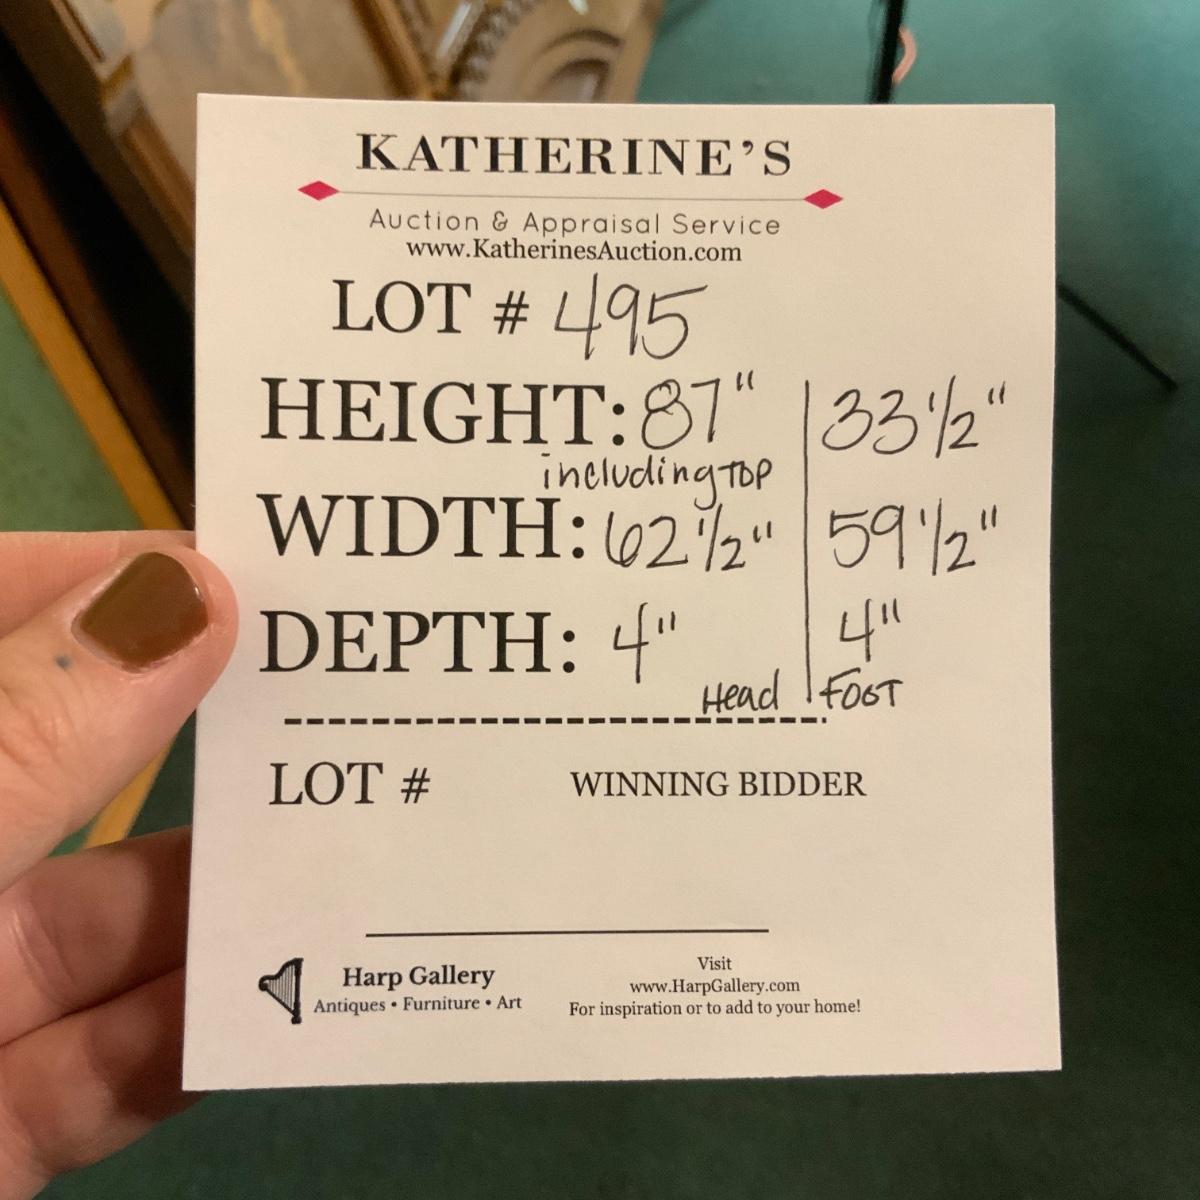 KATHERINE'S
Auction & Appraisal Service
www.KatherinesAuction.com
LOT # 495
HEIGHT: 87" 33 1/2"
including TOP
WIDTH: 62 1/2" 59 1/2"
DEPTH: 4" 4"
Head FOOT
LOT # WINNING BIDDER
Harp Gallery
Antiques • Furniture • Art
Visit
www.HarpGallery.com
For inspiration or to add to your home!